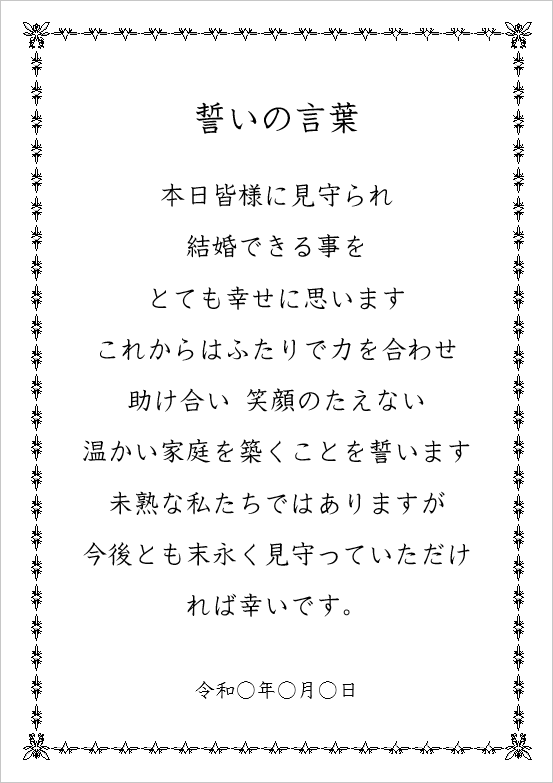 誓いの言葉
本日皆様に見守られ
結婚できる事を
とても幸せに思います
これからはふたりで力を合わせ
助け合い 笑顔のたえない
温かい家庭を築くことを誓います
未熟な私たちではありますが
今後とも末永く見守っていただけ
れば幸いです。
令和〇年〇月〇日